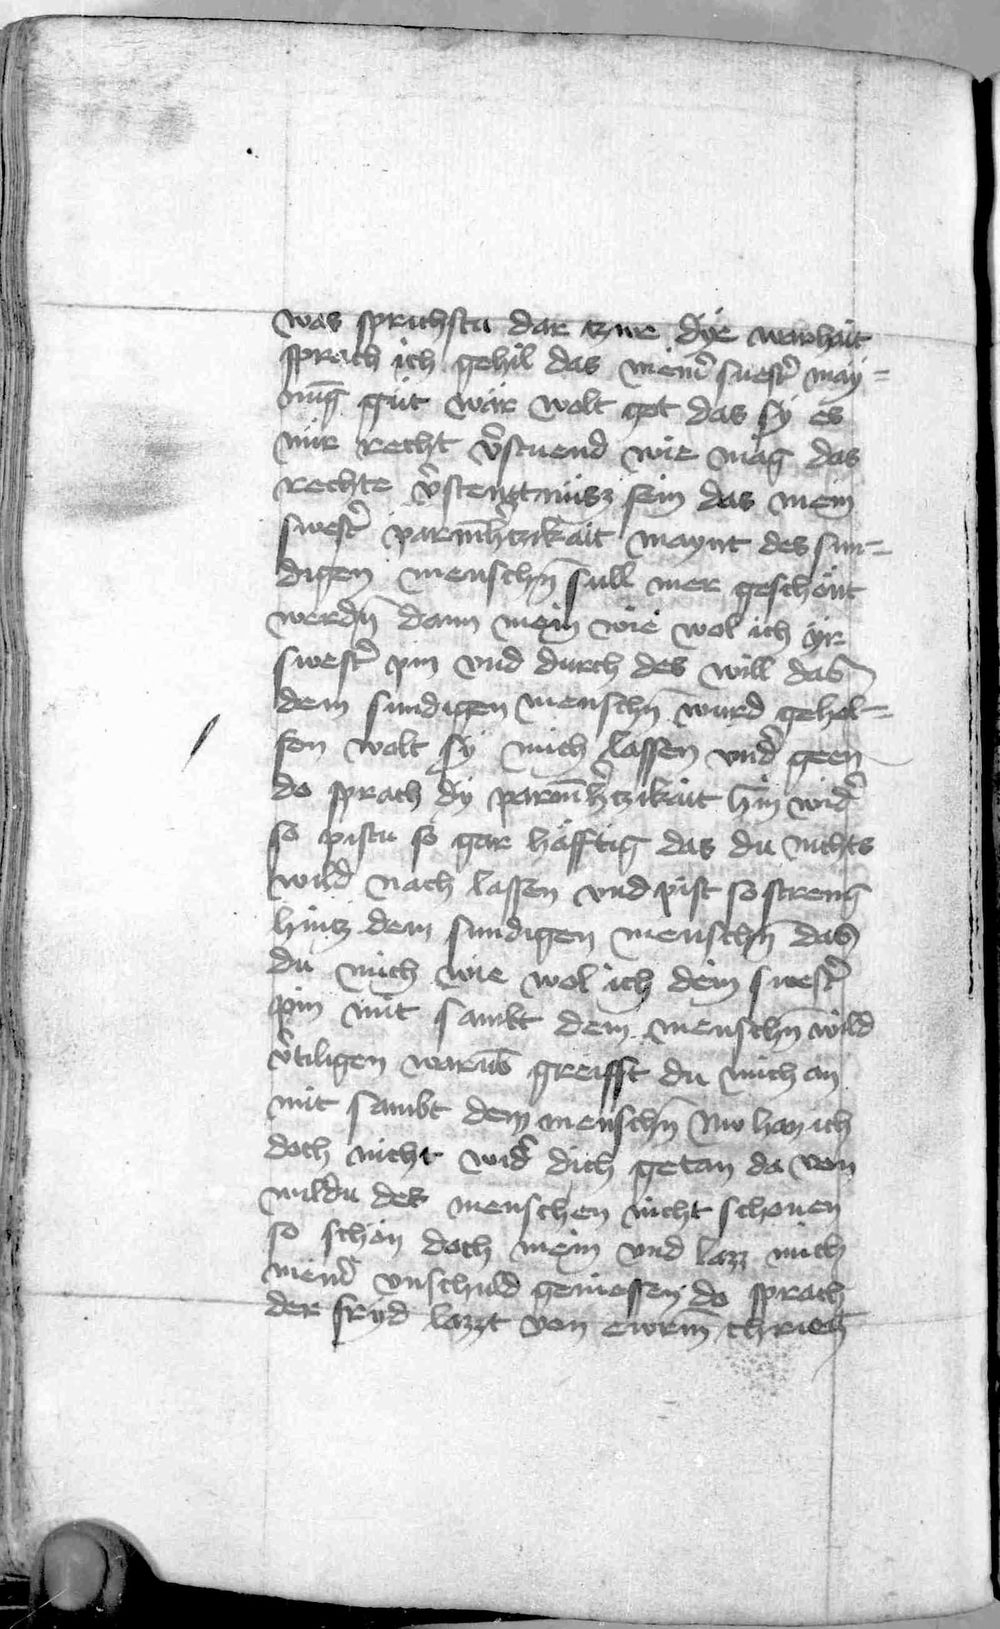 was sprichstu dar tzue dye warhait
sprach ich gehil das meinˀ suestˀ may=
nūg gut wär wolt got das sy es
nur recht vˀstuend wie mag das
rechte vˀstentnüsz sein das mein
swestˀ parmhˀtzikait maynt des sun=
digen menschn̄ sull mer geschont
werdn̄ dann mein wie wol ich yr
swestˀ pin vnd durch des will das
dem sundigen menschn̄ wurd gehol=
fen wolt sy mich lassen vndˀ geen
do sprach dy parmhˀtzikait hin widˀ
so pistu so gar häfftig das du nichts
wild nach lassen vnd pist so streng
hintz dem sundigen menschn̄ das
du mich wie wol ich dein swestˀ
pin mit sambt dem menschn̄ wild
vˀtiligen warūb greifft du mich an
mit sambt dem menschn̄ Nu han ich
doch nicht widˀ dich getan da von
wildu des menschen nicht schonen
so schon doch mein vnd lazz mich
meinˀ vnschuld geniessen do sprach
der fryd lazzt von ewrm̄ chrieg